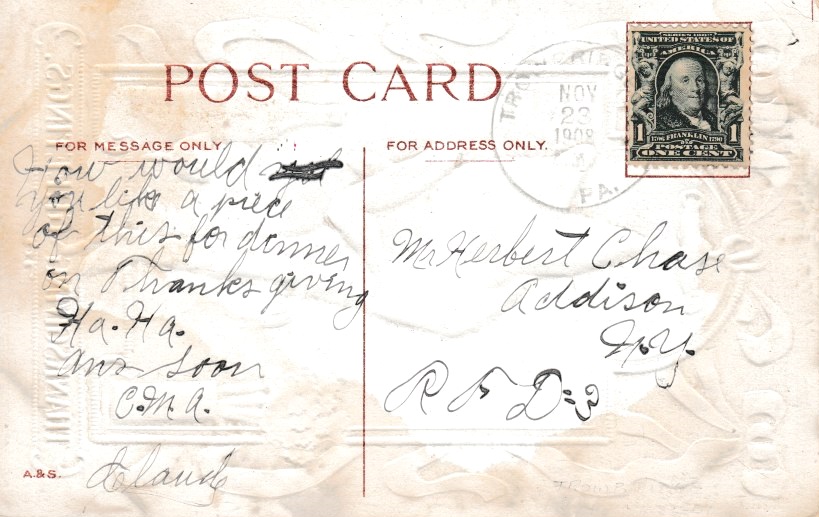 POST CARD
FOR MESSAGE ONLY
How would
you like a piece
of this for dinner
on Thanksgiving
Ha. Ha.
Ans Soon
C.M.A.
Claud
A.&S.
FOR ADDRESS ONLY.
Mr Herbert Chase
Addison
N.Y.
R F D=3
TROY
NOV
23
1908
PA.
SERIES 1902
UNITED STATES OF
AMERICA
1 1706 FRANKLIN 1790 1
POSTAGE
ONE CENT